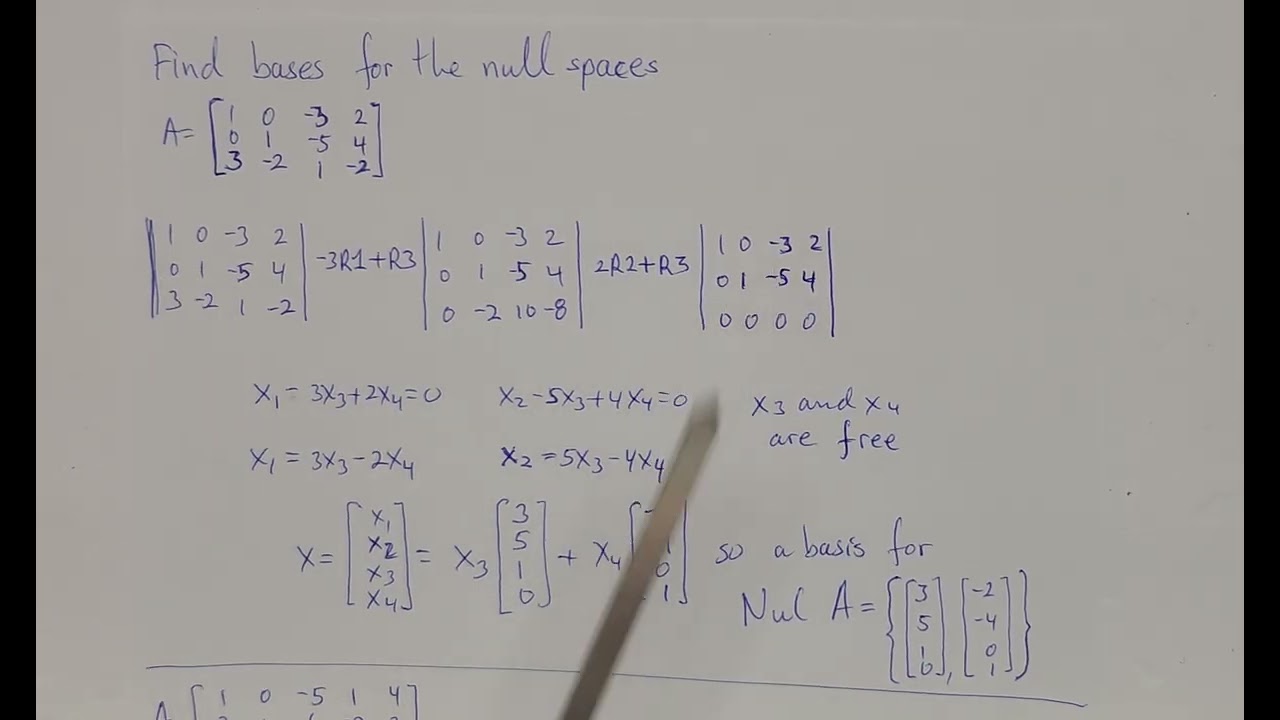 Find bases for the null spaces
A= [ 1 0 -3 2
0 1 -5 4
3 -2 1 -2 ]
| 1 0 -3 2 | -3R1+R3 | 1 0 -3 2 | 2R2+R3 | 1 0 -3 2 |
| 0 1 -5 4 | | 0 1 -5 4 | | 0 1 -5 4 |
| 3 -2 1 -2 | | 0 -2 10 -8 | | 0 0 0 0 |
x1 - 3x3+2x4=0 x2-5x3+4x4=0 x3 and x4
are free
x1 = 3x3-2x4 x2 =5x3-4x4
X= [ x1 x2 x3 x4 ] = x3 [ 3 5 1 0 ] + x4 [ 0 1 ] so a basis for
Nul A = { [ 3 5 1 0 ] , [ -2 -4 0 1 ] }
[ 1 0 -5 1 4 ]